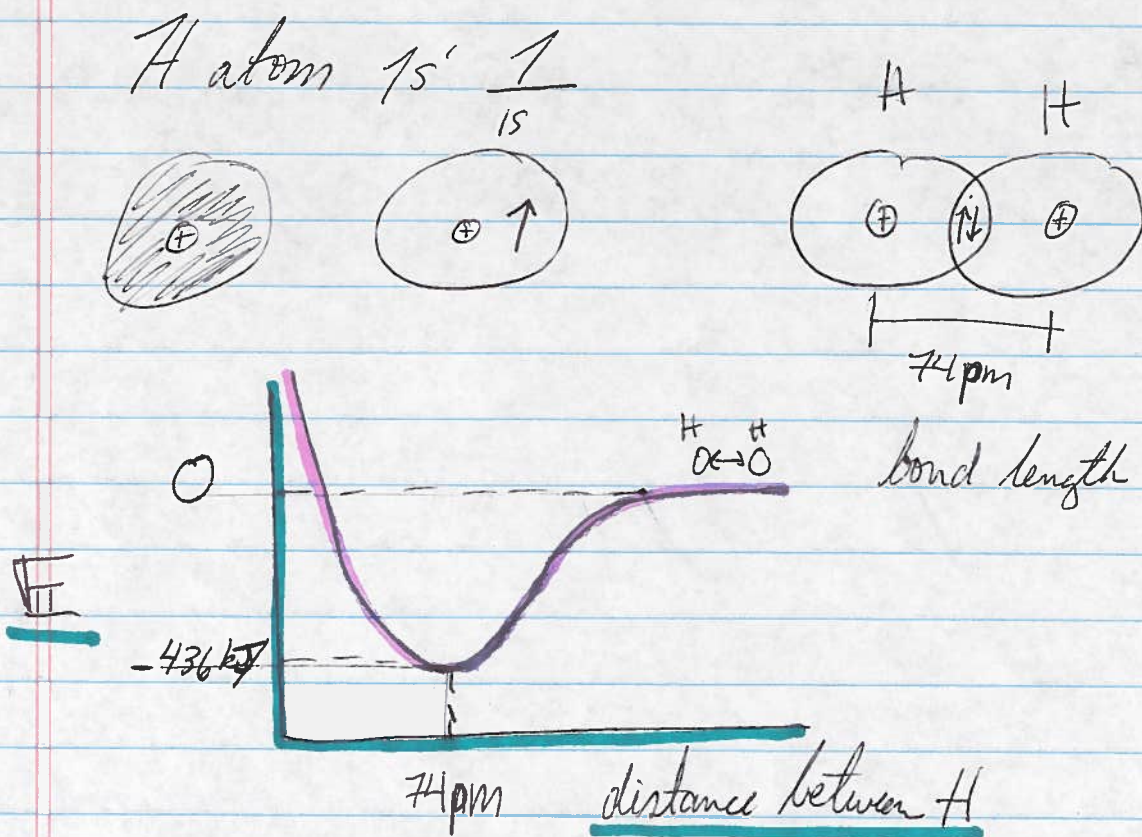 H atom 1s¹ 1
1s
H H
↑
↑↓
74pm
H H
O↔O
bond length
O
E
-436 kJ
74pm
distance between H